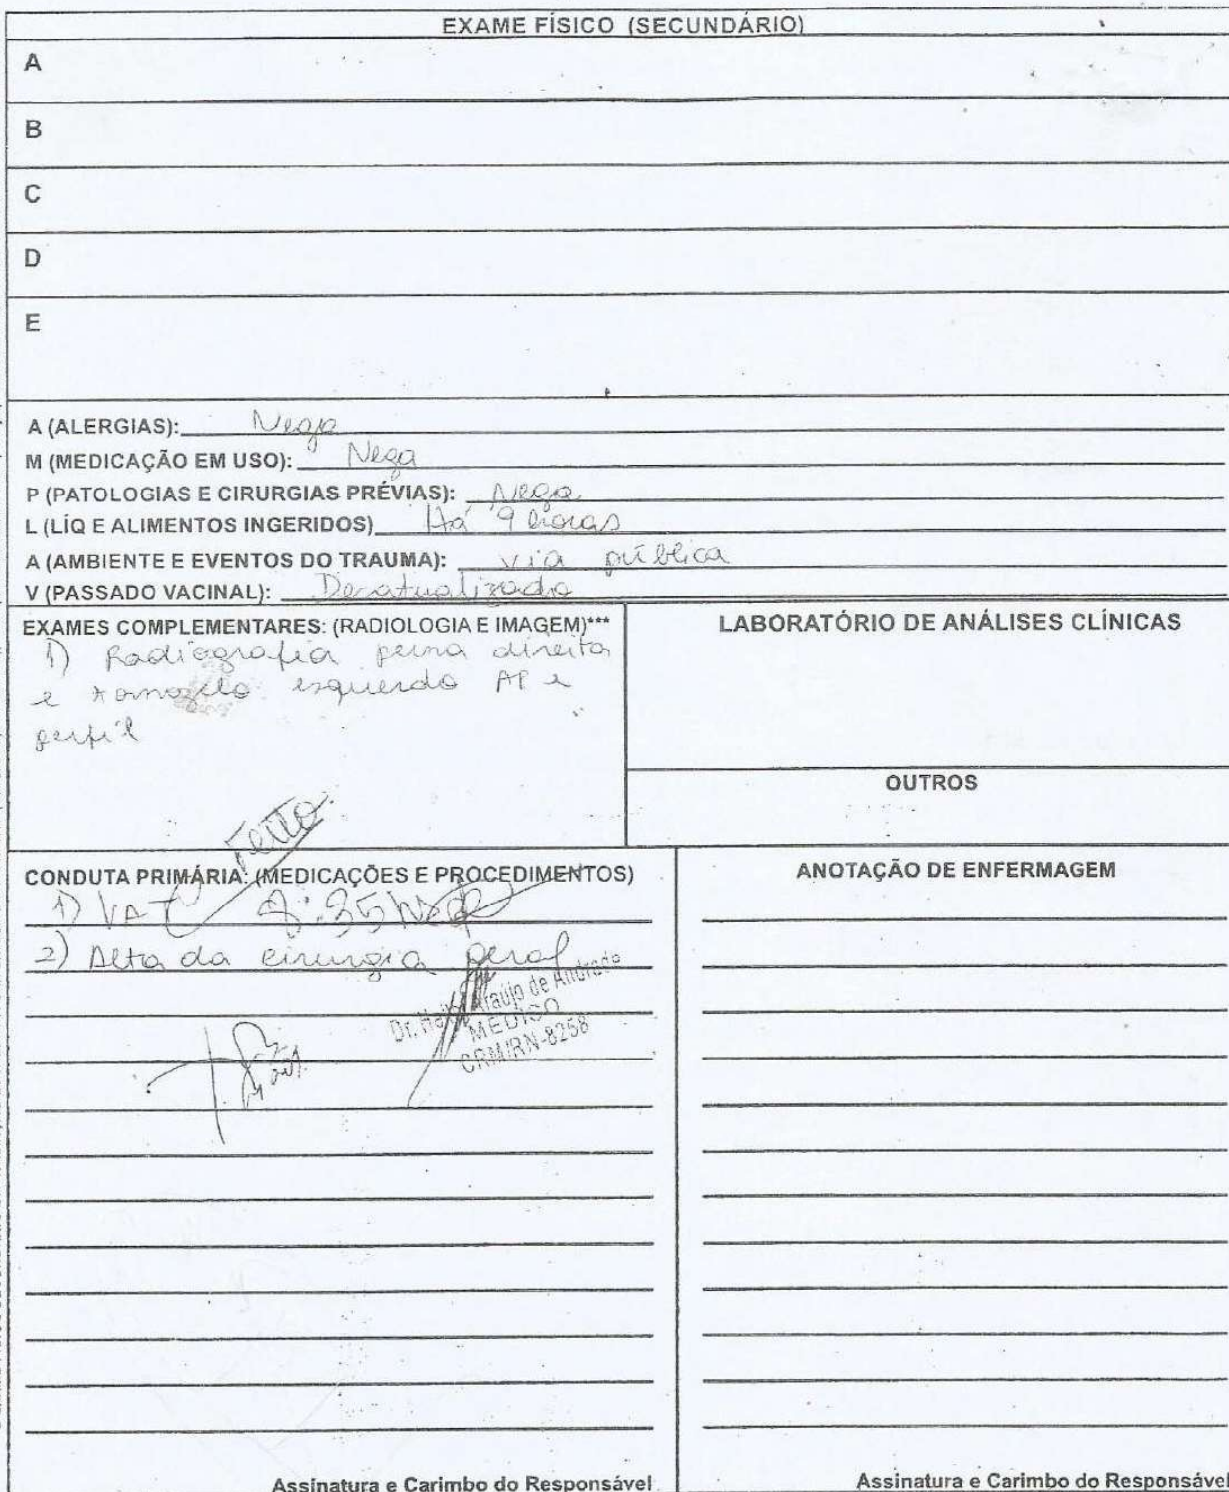 EXAME FÍSICO (SECUNDÁRIO)
A
B
C
D
E
A (ALERGIAS): Nega
M (MEDICAÇÃO EM USO): Nega
P (PATOLOGIAS E CIRURGIAS PRÉVIAS): Nega
L (LÍQ E ALIMENTOS INGERIDOS) Há 9 horas
A (AMBIENTE E EVENTOS DO TRAUMA): via pública
V (PASSADO VACINAL): Desatualizado
EXAMES COMPLEMENTARES: (RADIOLOGIA E IMAGEM)***
1) Radiografia perna direita
e tornozelo esquerdo AP e
perfil
LABORATÓRIO DE ANÁLISES CLÍNICAS
OUTROS
Feito
CONDUTA PRIMÁRIA: (MEDICAÇÕES E PROCEDIMENTOS)
1) VAT
2) Alta da cirurgia geral
Dr. Araújo de Andrade
MÉDICO
CRM/RN-8258
Assinatura e Carimbo do Responsável
ANOTAÇÃO DE ENFERMAGEM
Assinatura e Carimbo do Responsável